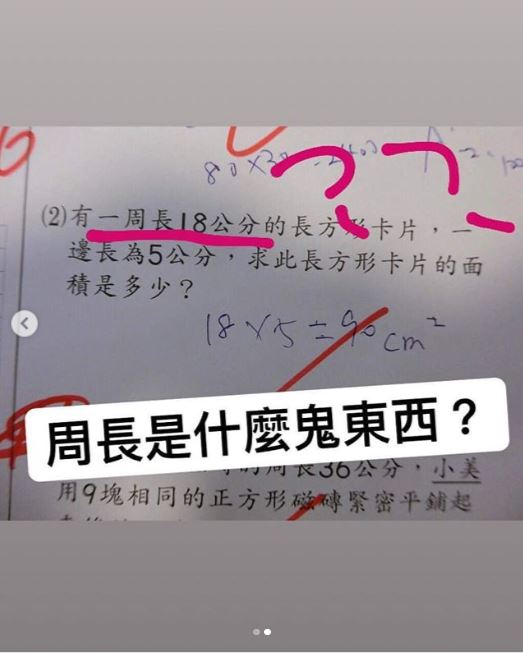 (2)有一周長18公分的長方形卡片，一
邊長為5公分，求此長方形卡片的面
積是多少？
18×5=90 cm²
周長是什麼鬼東西？
周長36公分，小美
用9塊相同的正方形磁磚緊密平鋪起